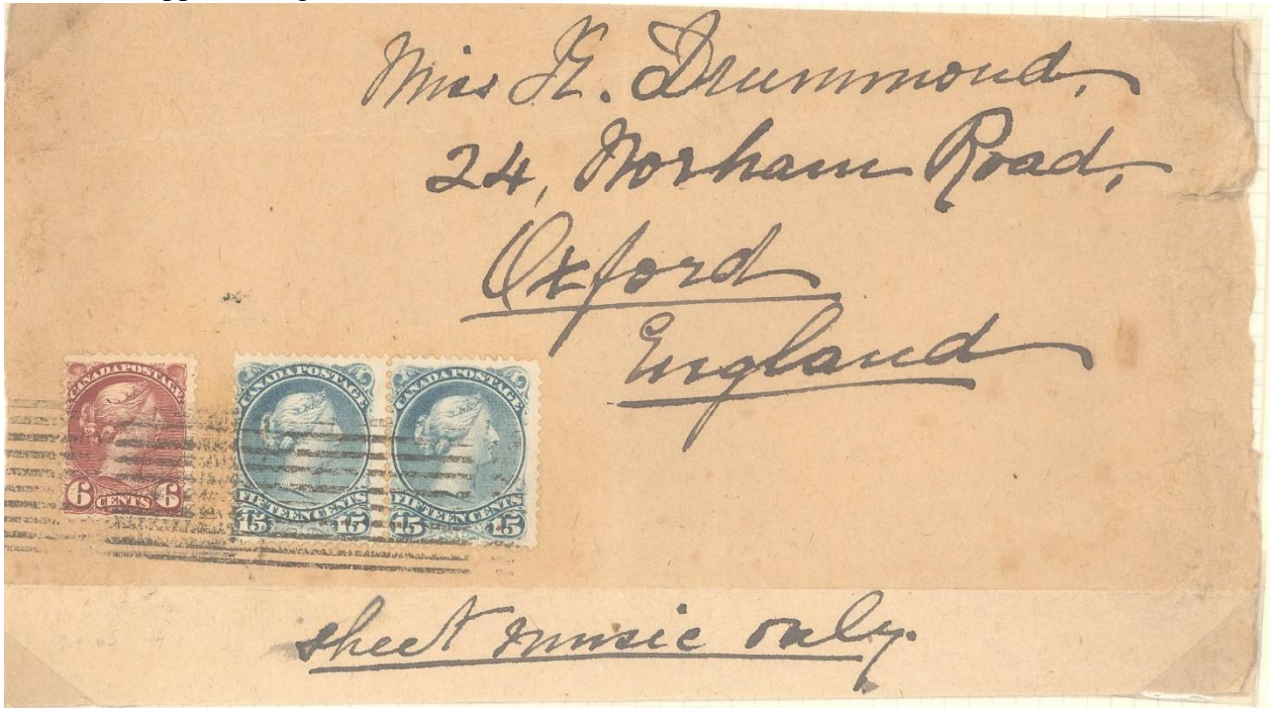 Miss K. Drummond,
24, Norham Road,
Oxford
England
CANADA POSTAGE
6 CENTS 6
CANADA POSTAGE
FIFTEEN CENTS
15 15
CANADA POSTAGE
FIFTEEN CENTS
15 15
sheet music only.